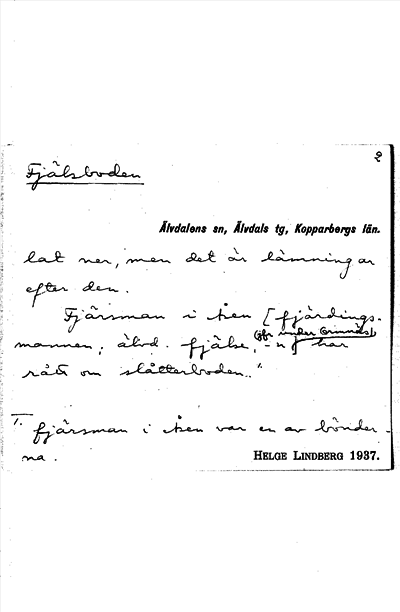 2
Fjälsboden
Älvdalens sn, Älvdals tg, Kopparbergs län.
lat ner, men det är lämningar
efter den.
Fjärsman i Åsen [fjärdings-
mannen; älvd. fjälse,
(jfr under Grunnäs)
har
rått om slåtterboden."
1. fjärsman i Åsen var en av bönder-
na.
HELGE LINDBERG 1937.